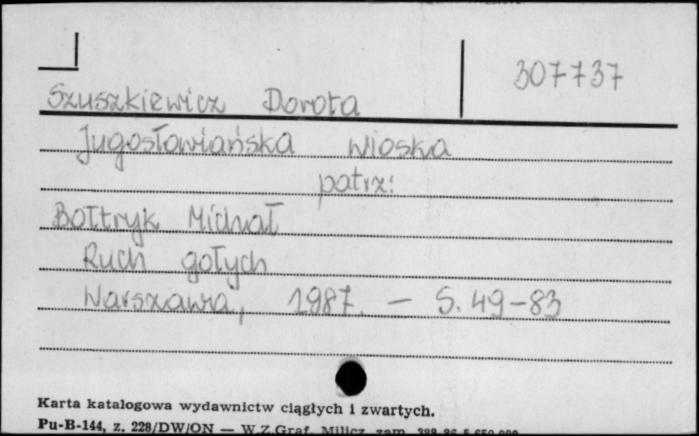 307737
Szuszkiewicz Dorota
Jugosłowiańska wioska
patrz:
Bołtryk Michał
Ruch gołych
Warszawa, 1987. — S. 49-83
Karta katalogowa wydawnictw ciągłych i zwartych.
Pu-B-144, z. 228/DW/ON — W.Z.Graf. Milicz zam.